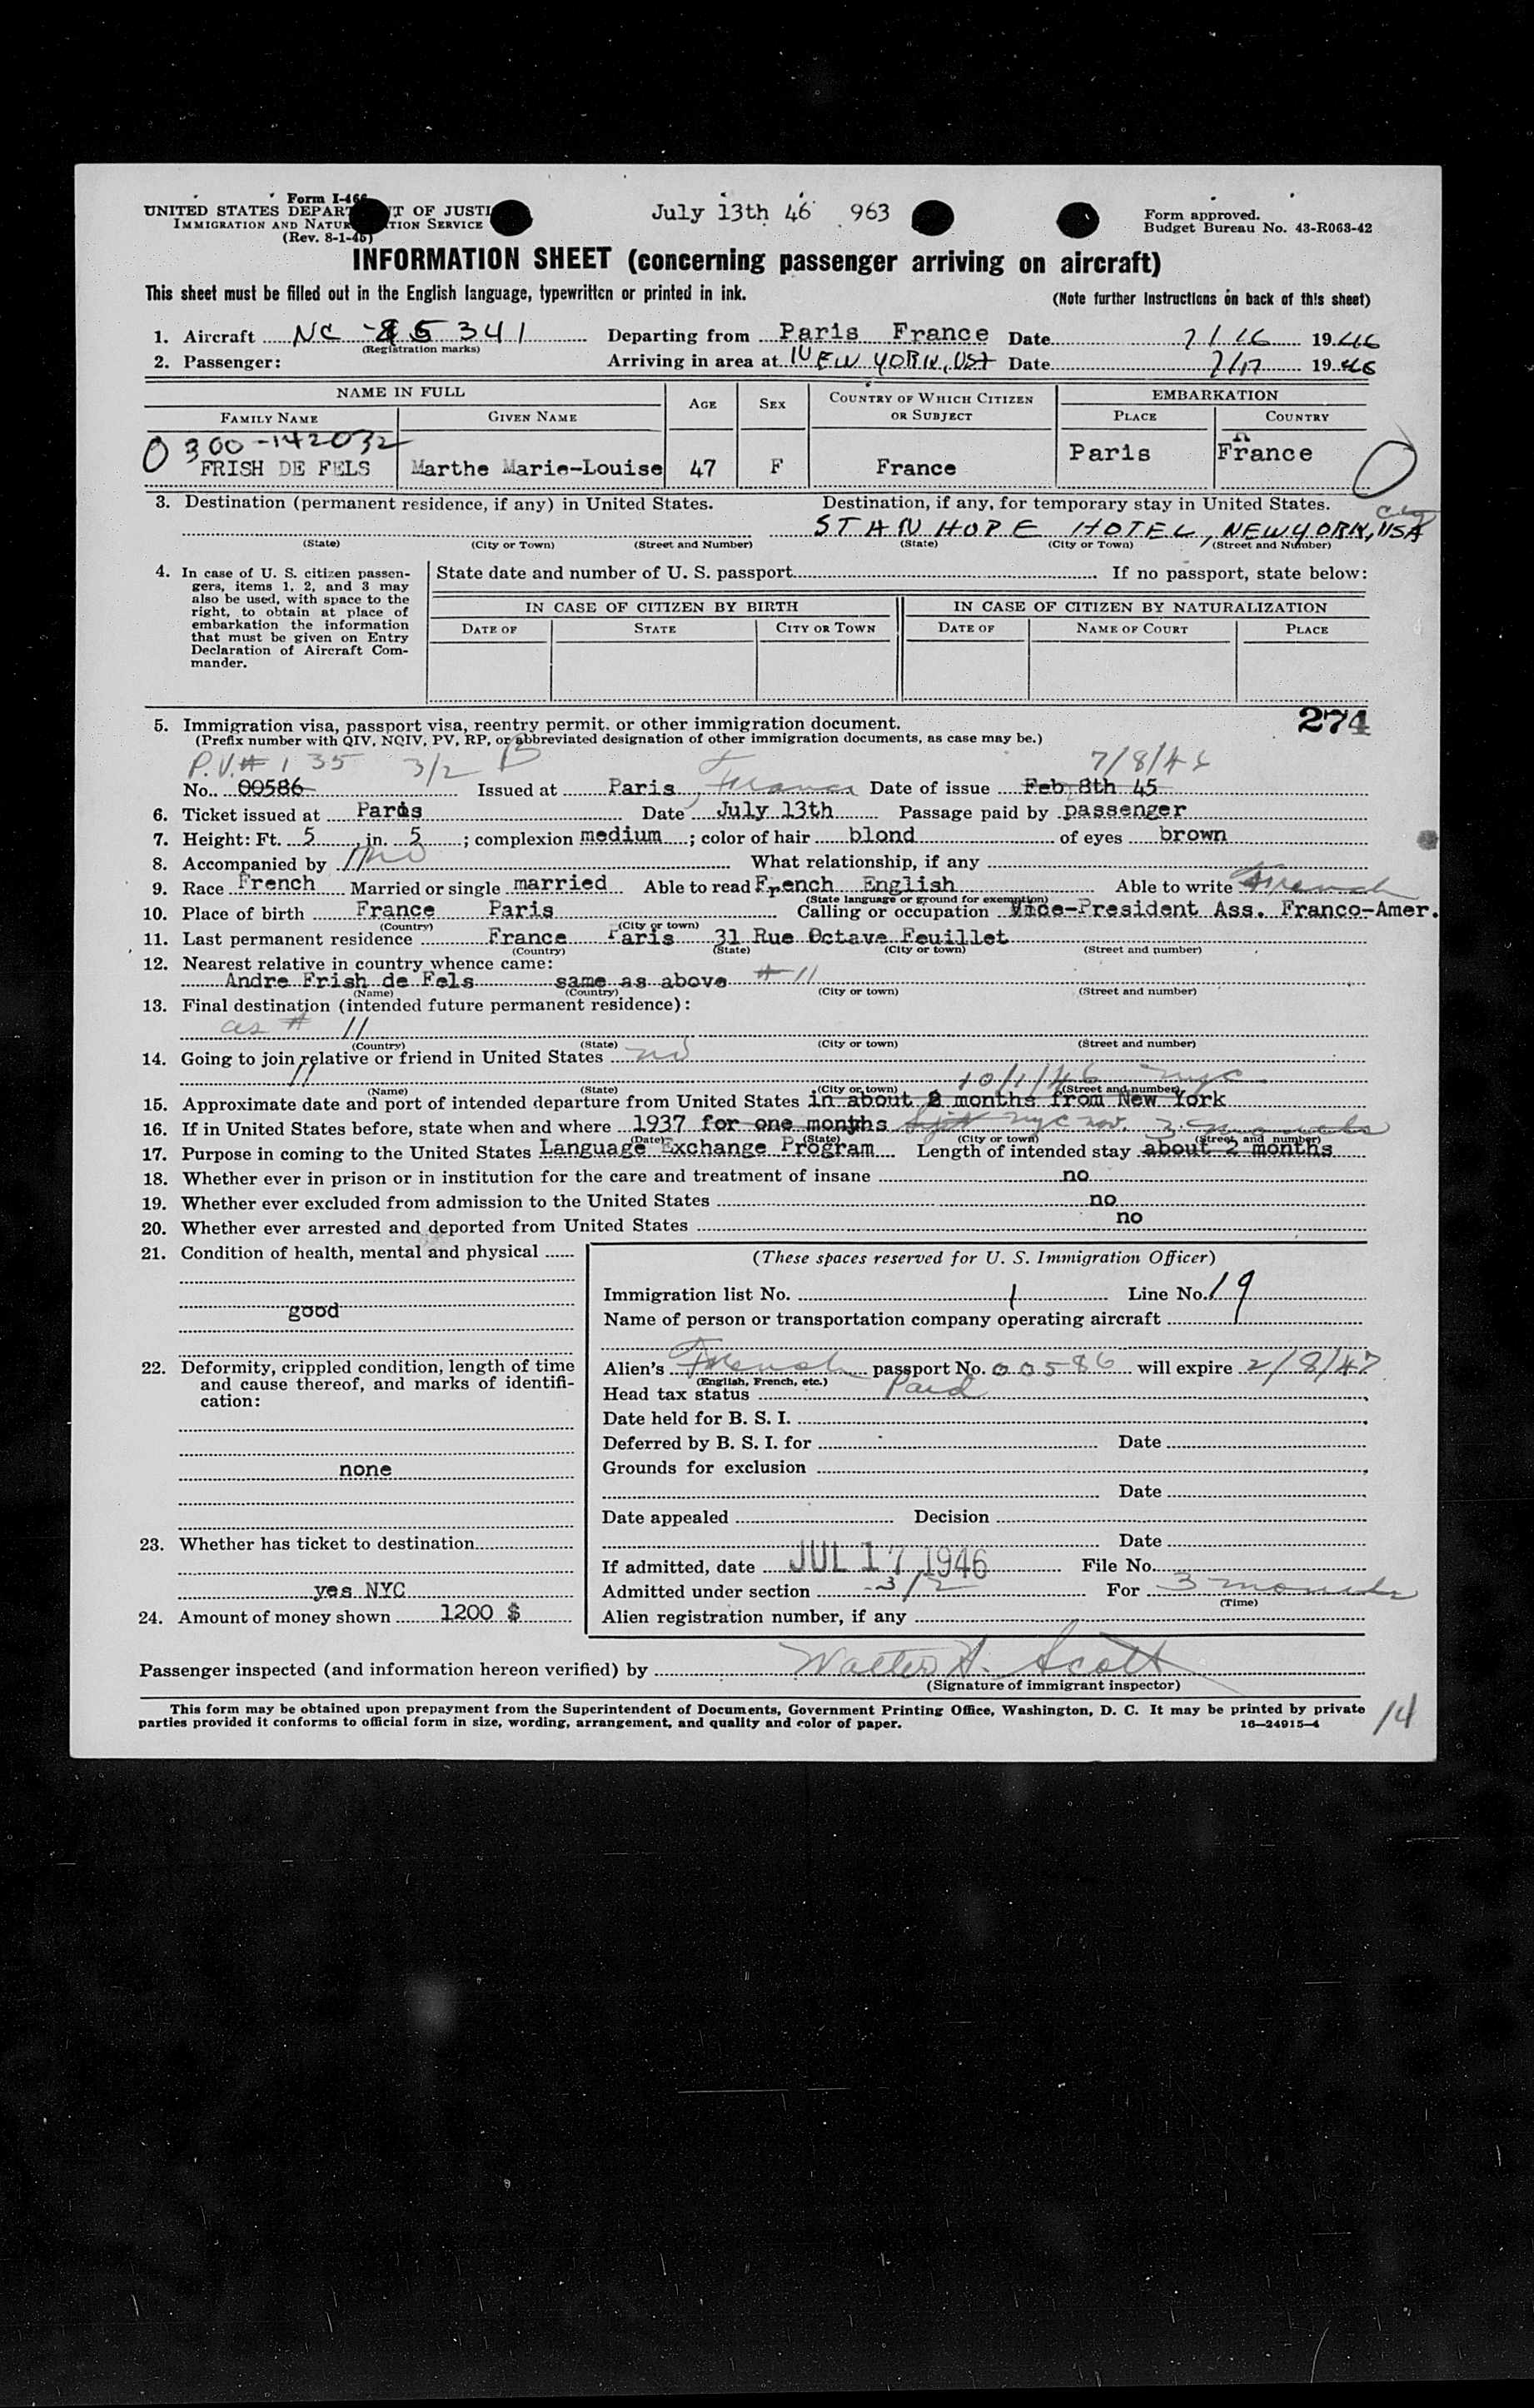 Form I-466
UNITED STATES DEPARTMENT OF JUSTICE
IMMIGRATION AND NATURALIZATION SERVICE
(Rev. 8-1-45)
July 13th 46 963
Form approved.
Budget Bureau No. 43-R063-42
INFORMATION SHEET (concerning passenger arriving on aircraft)
This sheet must be filled out in the English language, typewritten or printed in ink.
(Note further instructions on back of this sheet)
1. Aircraft NC -86341 Departing from Paris France Date 7/16 1946
(Registration marks)
2. Passenger: Arriving in area at NEW YORK, USA Date 7/17 1946
NAME IN FULL AGE SEX COUNTRY OF WHICH CITIZEN OR SUBJECT EMBARKATION
FAMILY NAME GIVEN NAME PLACE COUNTRY
0 300-142032
FRISH DE FELS Marthe Marie-Louise 47 F France Paris France
3. Destination (permanent residence, if any) in United States. Destination, if any, for temporary stay in United States.
STANHOPE HOTEL, NEW YORK, USA
(State) (City or Town) (Street and Number) (State) (City or Town) (Street and Number)
4. In case of U. S. citizen passengers, items 1, 2, and 3 may also be used, with space to the right, to obtain at place of embarkation the information that must be given on Entry Declaration of Aircraft Commander.
State date and number of U. S. passport If no passport, state below:
IN CASE OF CITIZEN BY BIRTH IN CASE OF CITIZEN BY NATURALIZATION
DATE OF STATE CITY OR TOWN DATE OF NAME OF COURT PLACE
274
5. Immigration visa, passport visa, reentry permit, or other immigration document.
(Prefix number with QIV, NQIV, PV, RP, or abbreviated designation of other immigration documents, as case may be.)
P.V.# 135 3/2 7/8/46
No. 00586 Issued at Paris, France Date of issue Feb 8th 45
6. Ticket issued at Paris Date July 13th Passage paid by passenger
7. Height: Ft. 5, in. 5; complexion medium; color of hair blond of eyes brown
8. Accompanied by no What relationship, if any
9. Race French Married or single married Able to read French English Able to write French
(State language or ground for exemption)
10. Place of birth France Paris Calling or occupation Vice-President Ass. Franco-Amer.
(Country) (City or town)
11. Last permanent residence France Paris 31 Rue Octave Feuillet
(Country) (State) (City or town) (Street and number)
12. Nearest relative in country whence came:
Andre Frish de Fels same as above # 11
(Name) (Country) (City or town) (Street and number)
13. Final destination (intended future permanent residence):
as # 11
(Country) (State) (City or town) (Street and number)
14. Going to join relative or friend in United States no
10/1/46 nyc
(Name) (State) (City or town) (Street and number)
15. Approximate date and port of intended departure from United States in about 2 months from New York
16. If in United States before, state when and where 1937 for one months nyc nov. 3 months
(Date) (State) (City or town) (Street and number)
17. Purpose in coming to the United States Language Exchange Program Length of intended stay about 2 months
18. Whether ever in prison or in institution for the care and treatment of insane no
19. Whether ever excluded from admission to the United States no
20. Whether ever arrested and deported from United States no
21. Condition of health, mental and physical
good
22. Deformity, crippled condition, length of time and cause thereof, and marks of identification:
none
23. Whether has ticket to destination
yes NYC
24. Amount of money shown 1200 $
(These spaces reserved for U. S. Immigration Officer)
Immigration list No. 1 Line No. 19
Name of person or transportation company operating aircraft
Alien's French passport No. 00586 will expire 2/8/47
(English, French, etc.)
Head tax status Paid
Date held for B. S. I.
Deferred by B. S. I. for Date
Grounds for exclusion
Date
Date appealed Decision
Date
If admitted, date JUL 17 1946 File No.
Admitted under section 3/2 For 3 months
(Time)
Alien registration number, if any
Passenger inspected (and information hereon verified) by Walter A. Scott
(Signature of immigrant inspector)
This form may be obtained upon prepayment from the Superintendent of Documents, Government Printing Office, Washington, D. C. It may be printed by private
parties provided it conforms to official form in size, wording, arrangement, and quality and color of paper. 16—24915-4
14